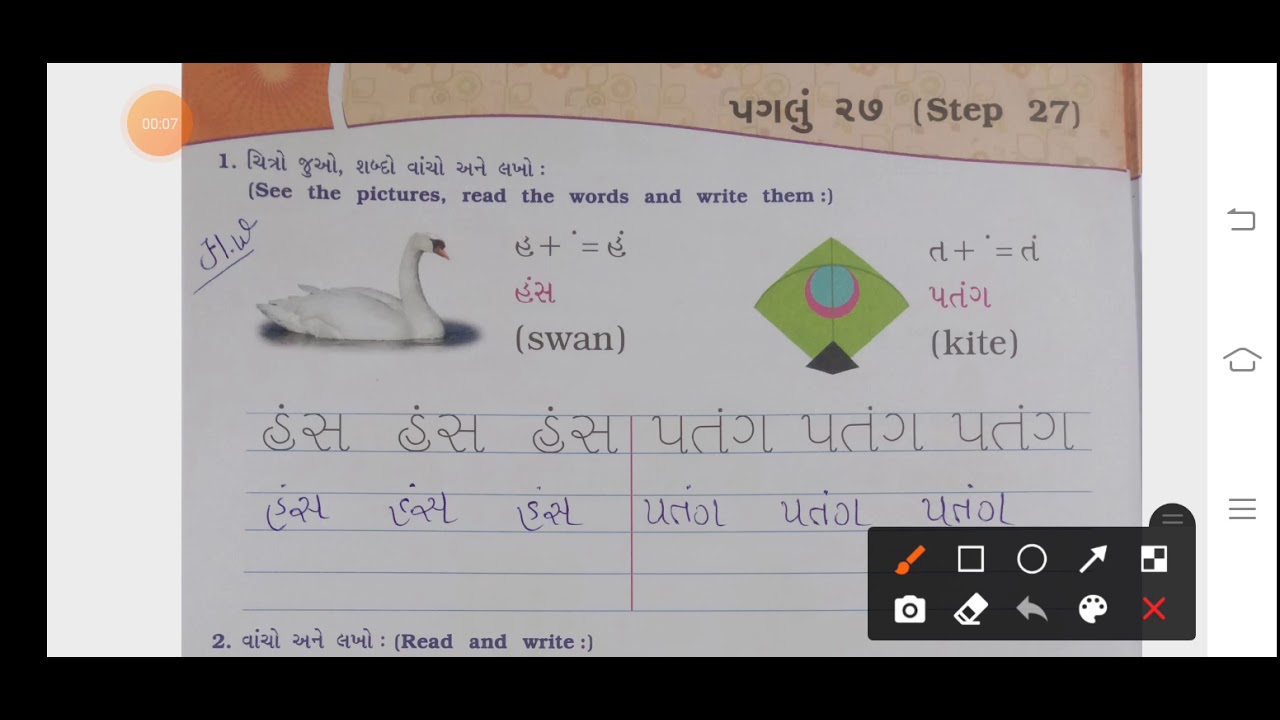 00:07
પગલું ૨૭ (Step 27)
1. ચિત્રો જુઓ, શબ્દો વાંચો અને લખો :
(See the pictures, read the words and write them :)
H.W
હ + ં = હં
હંસ
(swan)
ત + ં = તં
પતંગ
(kite)
હંસ હંસ હંસ પતંગ પતંગ પતંગ
હંસ હંસ હંસ પતંગ પતંગ પતંગ
2. વાંચો અને લખો : (Read and write :)